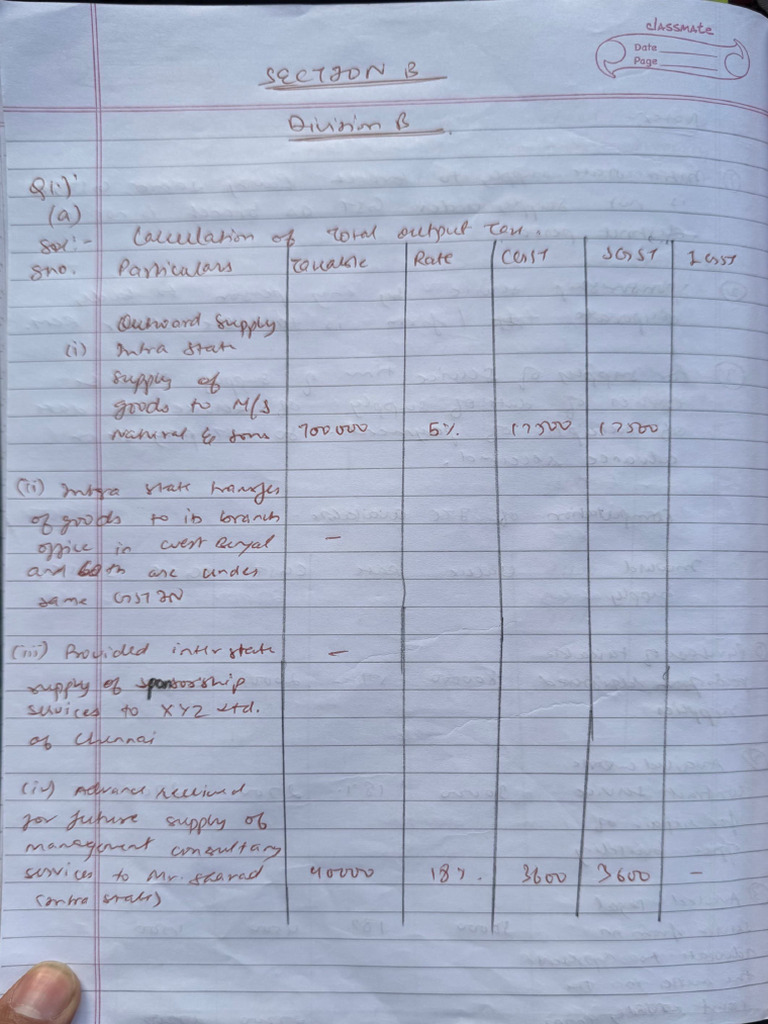 classmate
Date
Page
SECTION B
Division B
Q(1)
(a)
Sol:- Calculation of Total output Tax.
Sno. Particulars Taxable Rate CGST SGST IGST
Outward Supply
(i) Intra state
supply of
goods to M/S
Natural & sons 700000 5% 17500 17500
(ii) Intra state transfer
of goods to its branch
office in West Bengal -
and both are under
same GSTIN
(iii) Provided inter state -
supply of sponsorship
services to XYZ Ltd.
of Chennai
(iv) Advance received
for future supply of
management consultancy
services to Mr. Sharad 40000 18% 3600 3600 -
(Intra state)